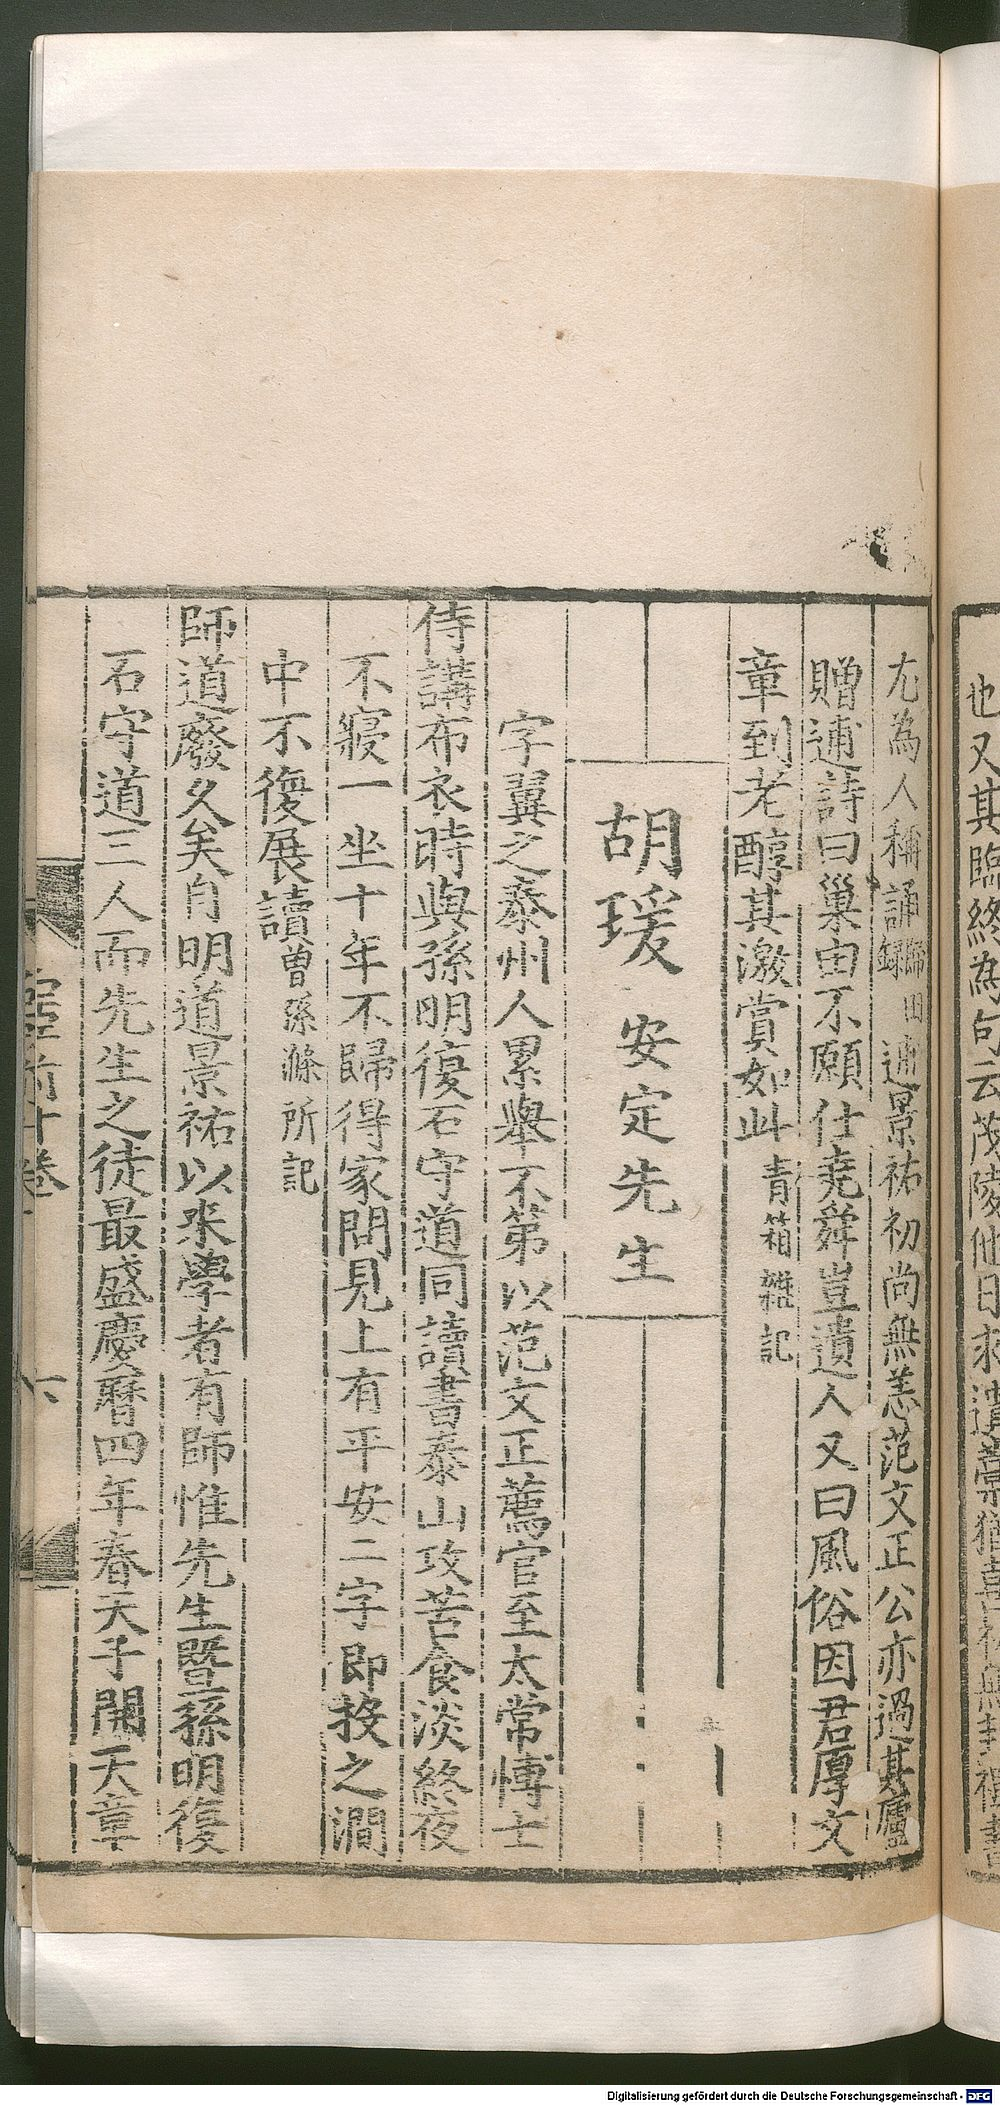 也又其臨終為句云茂陵他日求遺藁猶喜初無封禪書
尤為人稱誦歸田錄逋景祐初尚無恙范文正公亦過其廬
贈逋詩曰巢由不願仕堯舜豈遺人又曰風俗因君厚文
章到老醇其激賞如此青箱雜記
胡瑗安定先生
字翼之泰州人累舉不第以范文正薦官至太常博士
侍講布衣時與孫明復石守道同讀書泰山攻苦食淡終夜
不寢一坐十年不歸得家問見上有平安二字即投之澗
中不復展讀曾孫滌所記
師道廢久矣自明道景祐以來學者有師惟先生暨孫明復
石守道三人而先生之徒最盛慶曆四年春天子開天章
前十卷 六
Digitalisierung gefördert durch die Deutsche Forschungsgemeinschaft - DFG